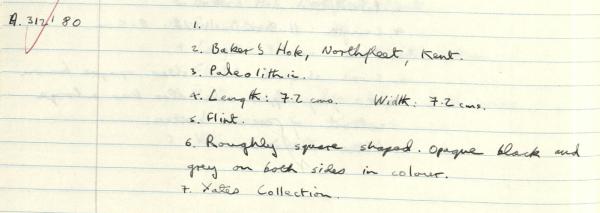 A. 312' 80 1.
2. Baker's Hole, Northfleet, Kent.
3. Paleolithic.
4. Length: 7.2 cms. Width: 7.2 cms.
5. Flint.
6. Roughly square shaped. Opaque black and
grey on both sides in colour.
7. Yates Collection.